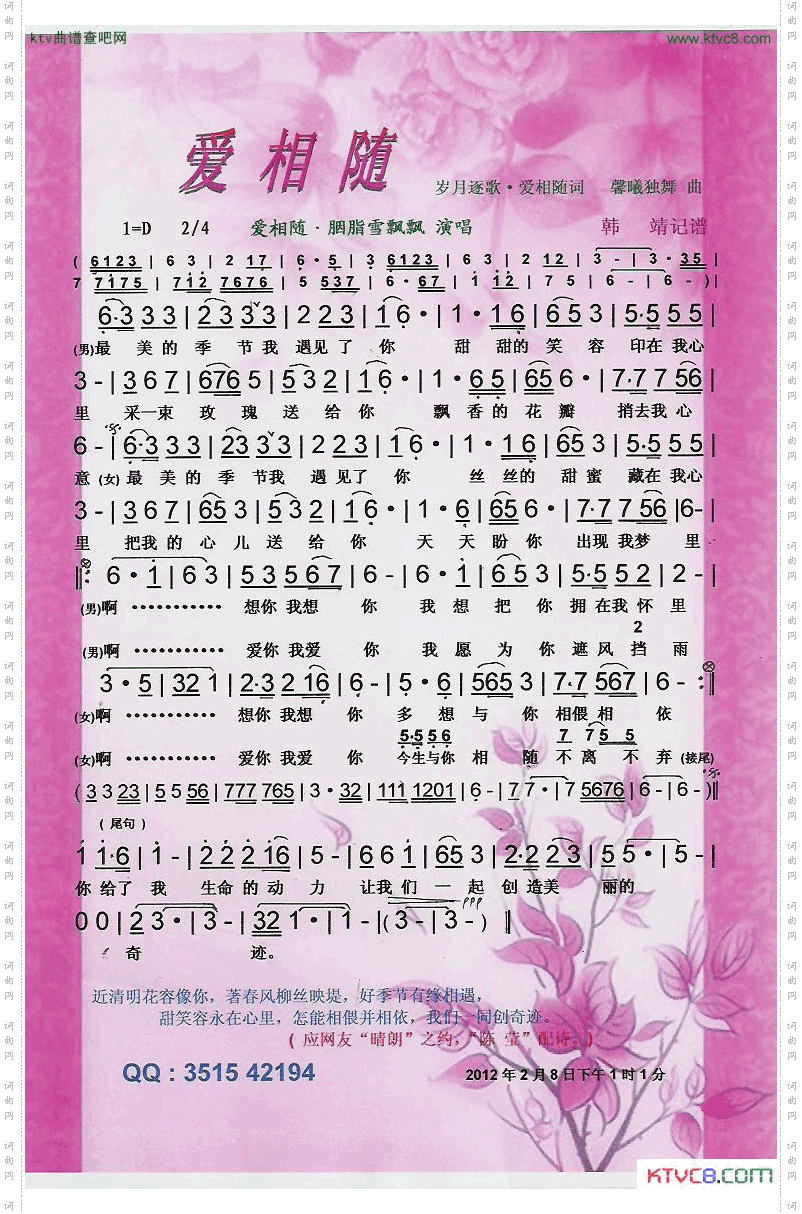 ktv曲谱查吧网 www.ktvc8.com
爱相随
岁月逐歌·爱相随词 馨曦独舞 曲
1=D 2/4 爱相随·胭脂雪飘飘 演唱 韩 靖记谱
( 6123 | 6 3 | 2 17 | 6·5 | 3 6123 | 6 3 | 2 12 | 3 - | 3·35 |
7 7175 | 712 7676 | 5 537 | 6·67 | 1 12 | 7 5 | 6 - | 6 - )|
6·3 3 3 | 2 3 3 3 | 2 2 3 | 1 6· | 1·1 6 | 6 5 3 | 5·5 5 5 |
(男)最 美 的 季 节 我 遇见 了 你 甜 甜的 笑 容 印在 我心
3 - | 3 6 7 | 676 5 | 5 3 2 | 1 6· | 1·6 5 | 65 6· | 7·7 7 56 |
里 采一束 玫 瑰 送 给 你 飘 香 的 花 瓣 捎去我 心
6 - | 6·3 3 3 | 2 3 3 3 | 2 2 3 | 1 6· | 1·1 6 | 6 5 3 | 5·5 5 5 |
意 (女) 最 美 的 季 节我 遇 见了 你 丝 丝的 甜 蜜 藏在 我心
3 - | 3 6 7 | 65 3 | 5 3 2 | 1 6· | 1·6 | 56 5 6· | 7·7 7 56 | 6- |
里 把我 的 心 儿 送 给 你 天 天 盼 你 出现 我梦 里
6·1 | 6 3 | 5 3 5 6 7 | 6 - | 6 - | 6·1 | 65 3 | 5·5 5 2 | 2 - |
(男)啊 ··········· 想你 我想 你 我 想 把 你 拥 在我 怀 里
2
(男)啊 ··········· 爱你 我爱 你 我 愿 为 你 遮 风 挡 雨
3·5 | 32 1 | 2·3 2 16 | 6 - | 5·6 | 565 3 | 7·7 567 | 6 - :‖
(女)啊 ··········· 想你 我想 你 多 想 与 你 相偎 相 依
5·5 5 6 7 7 5 5
(女)啊 ··········· 爱你 我爱 你 今生与你 相 随 不 离 不 弃 (接尾)
( 3 3 23 | 5 5 5 | 777 765 | 3·32 | 111 1201 | 6 - | 7 7· | 7 5676 | 6 - )‖
( 尾句 )
1 1·6 | 1 - | 2 2 2 16 | 5 - | 6 6 1 | 65 3 | 2·2 2 3 | 5 5· | 5 - |
你 给了 我 生命 的 动 力 让我 们 一 起 创 造美 丽的
ppp
0 0 | 2 3· | 3 - | 32 1· | 1 - |( 3 - | 3 - ) ‖
奇 迹。
近清明花容像你，著春风柳丝映堤，好季节有缘相遇，
甜笑容永在心里，怎能相偎并相依，我们一同创奇迹。
( 应网友“晴朗”之约，“陈 莹”配诗。)
QQ：3515 42194 2012 年 2 月 8 日下午 1 时 1 分
KTVC8.com